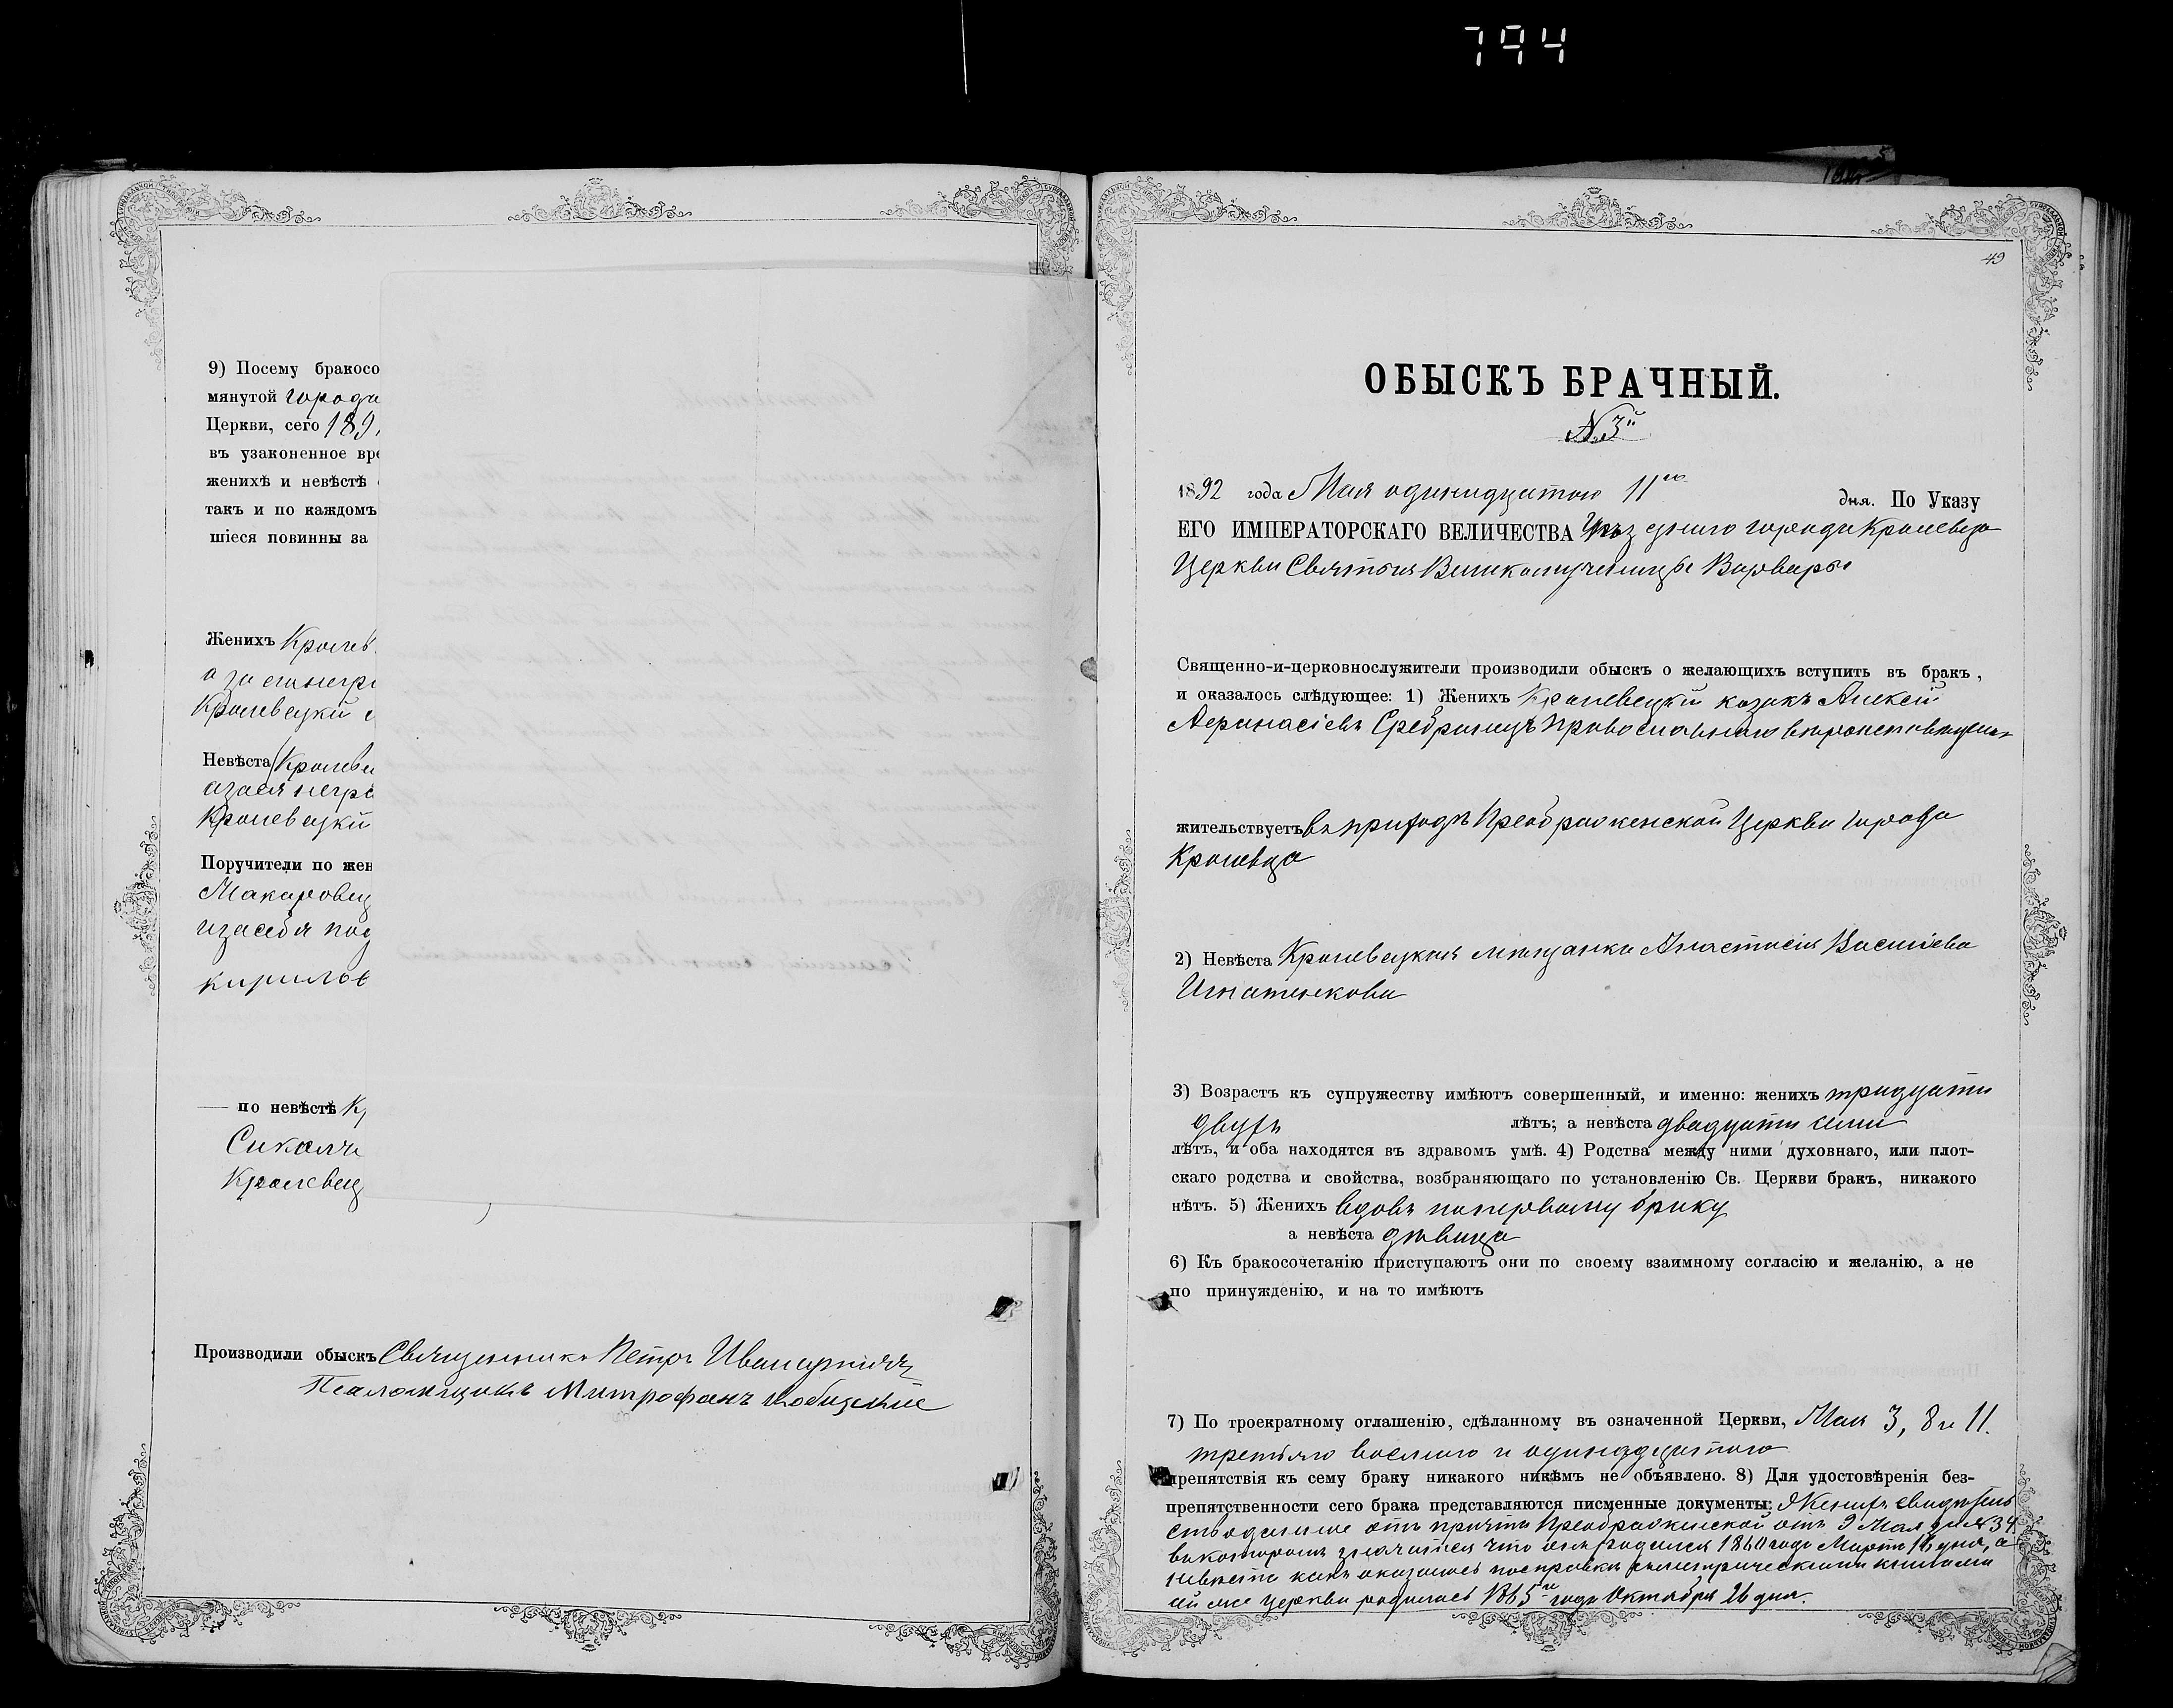 794
9) Посему бракосо
мянутой города
Церкви, сего 189
въ узаконенное вре
женихѣ и невѣстѣ
такъ и по каждомъ
шіеся повинны за
Женихъ Кролев
а за неграм
Кролевецкій
Невѣста Кролеве
а за ея негра
Кролевецкій
Поручители по жен
Макаровец
и за себя под
Кирилов
— по невѣстѣ Кр
Сикалч
Кролевец
Производили обыскъ Священникъ Петръ
Псаломщикъ Митрофанъ
49
ОБЫСКЪ БРАЧНЫЙ.
№ 3й
1892 года Мая одинадцатого 11го дня. По Указу
ЕГО ИМПЕРАТОРСКАГО ВЕЛИЧЕСТВА Уѣзднаго города Кролевца
Церкви Святыя Великомученицы Варвары
Священно-и-церковнослужители производили обыскъ о желающихъ вступить въ бракъ,
и оказалось слѣдующее: 1) Женихъ Кролевецкій козакъ Алексѣй
Афанасіевъ Сребраницъ православнаго вѣроисповѣданія
жительствуетъ въ приходѣ Преображенской Церкви города
Кролевца
2) Невѣста Кролевецкая мѣщанка Анастасія Василіева
Игнатенкова
3) Возрастъ къ супружеству имѣютъ совершенный, и именно: женихъ тридцати
двухъ лѣтъ; а невѣста двадцати семи
лѣтъ, и оба находятся въ здравомъ умѣ. 4) Родства между ними духовнаго, или плот-
скаго родства и свойства, возбраняющаго по установленію Св. Церкви бракъ, никакого
нѣтъ. 5) Женихъ вдовъ по первому браку
а невѣста дѣвица
6) Къ бракосочетанію приступаютъ они по своему взаимному согласію и желанію, а не
по принужденію, и на то имѣютъ
7) По троекратному оглашенію, сдѣланному въ означенной Церкви, Мая 3, 8 и 11.
третьяго восмого и одинадцатого
препятствія къ сему браку никакого никѣмъ не объявлено. 8) Для удостовѣренія без-
препятственности сего брака представляются писменные документы: Женихъ свидѣтель
ство данное отъ причта Преображенской отъ 9 Мая за № 34
въ которомъ значится что онъ родился 1860 года Марта 16 дня, а
невѣста какъ оказалось по справки съ метрическими книгами
ей же церкви родилась 1865го года Октября 26 дня.